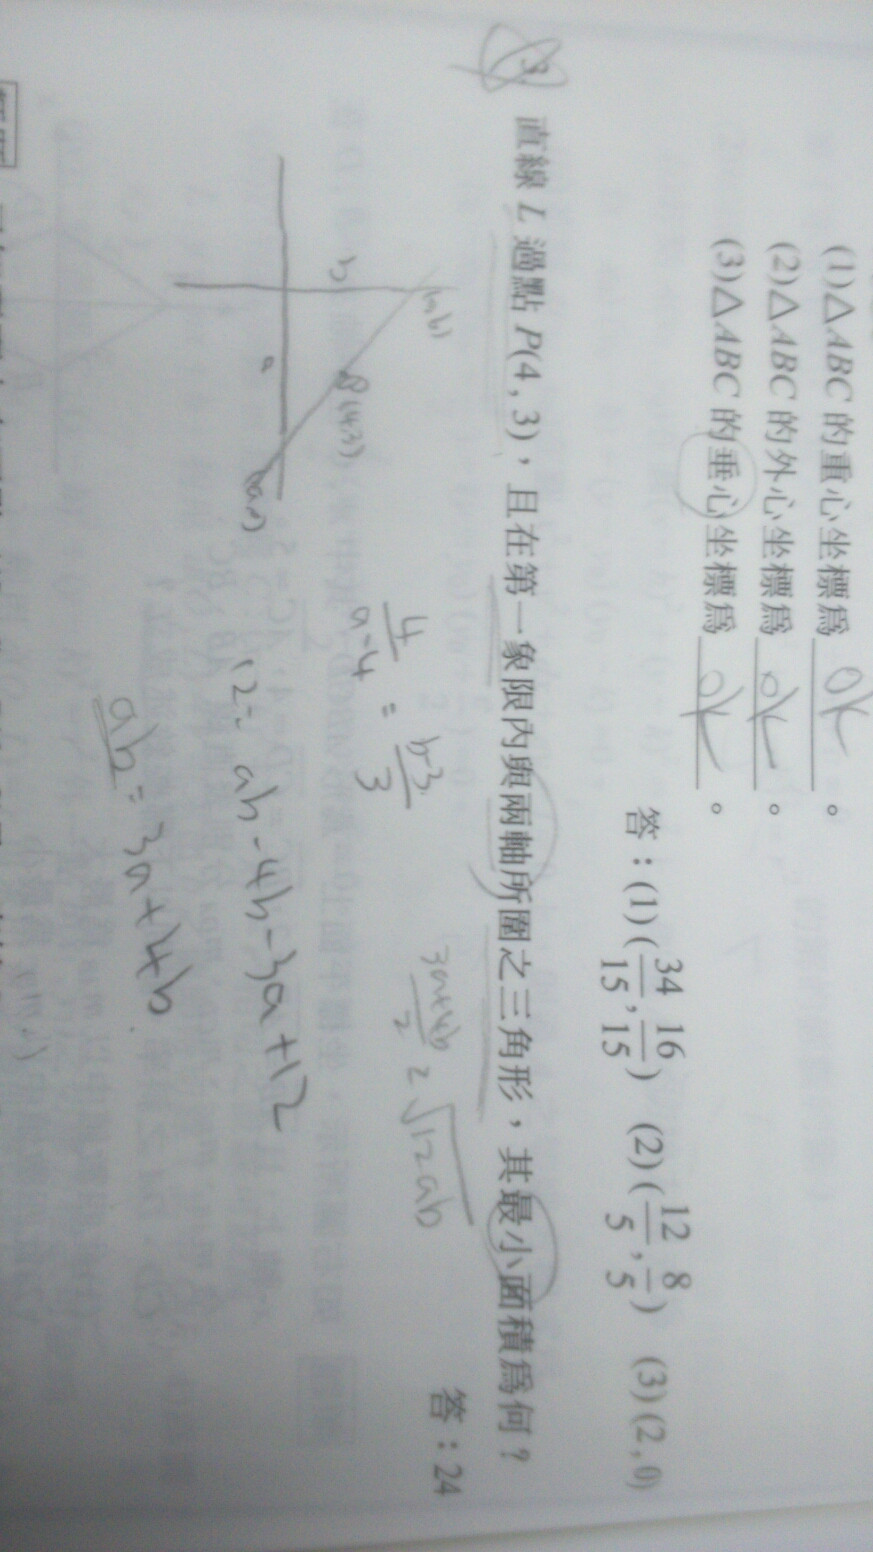 (1)△ABC 的重心坐標為 ok 。
(2)△ABC 的外心坐標為 ok 。
(3)△ABC 的垂心坐標為 ok 。
答：(1)(34/15, 16/15) (2)(12/5, 8/5) (3)(2, 0)
3. 直線 L 過點 P(4, 3)，且在第一象限內與兩軸所圍之三角形，其最小面積為何？
答：24
(0,b)
b
(4,3)
a
4/a-4 = b-3/3
12 = ab-4b-3a+12
ab = 3a+4b
3a+4b/2 ≥ √12ab